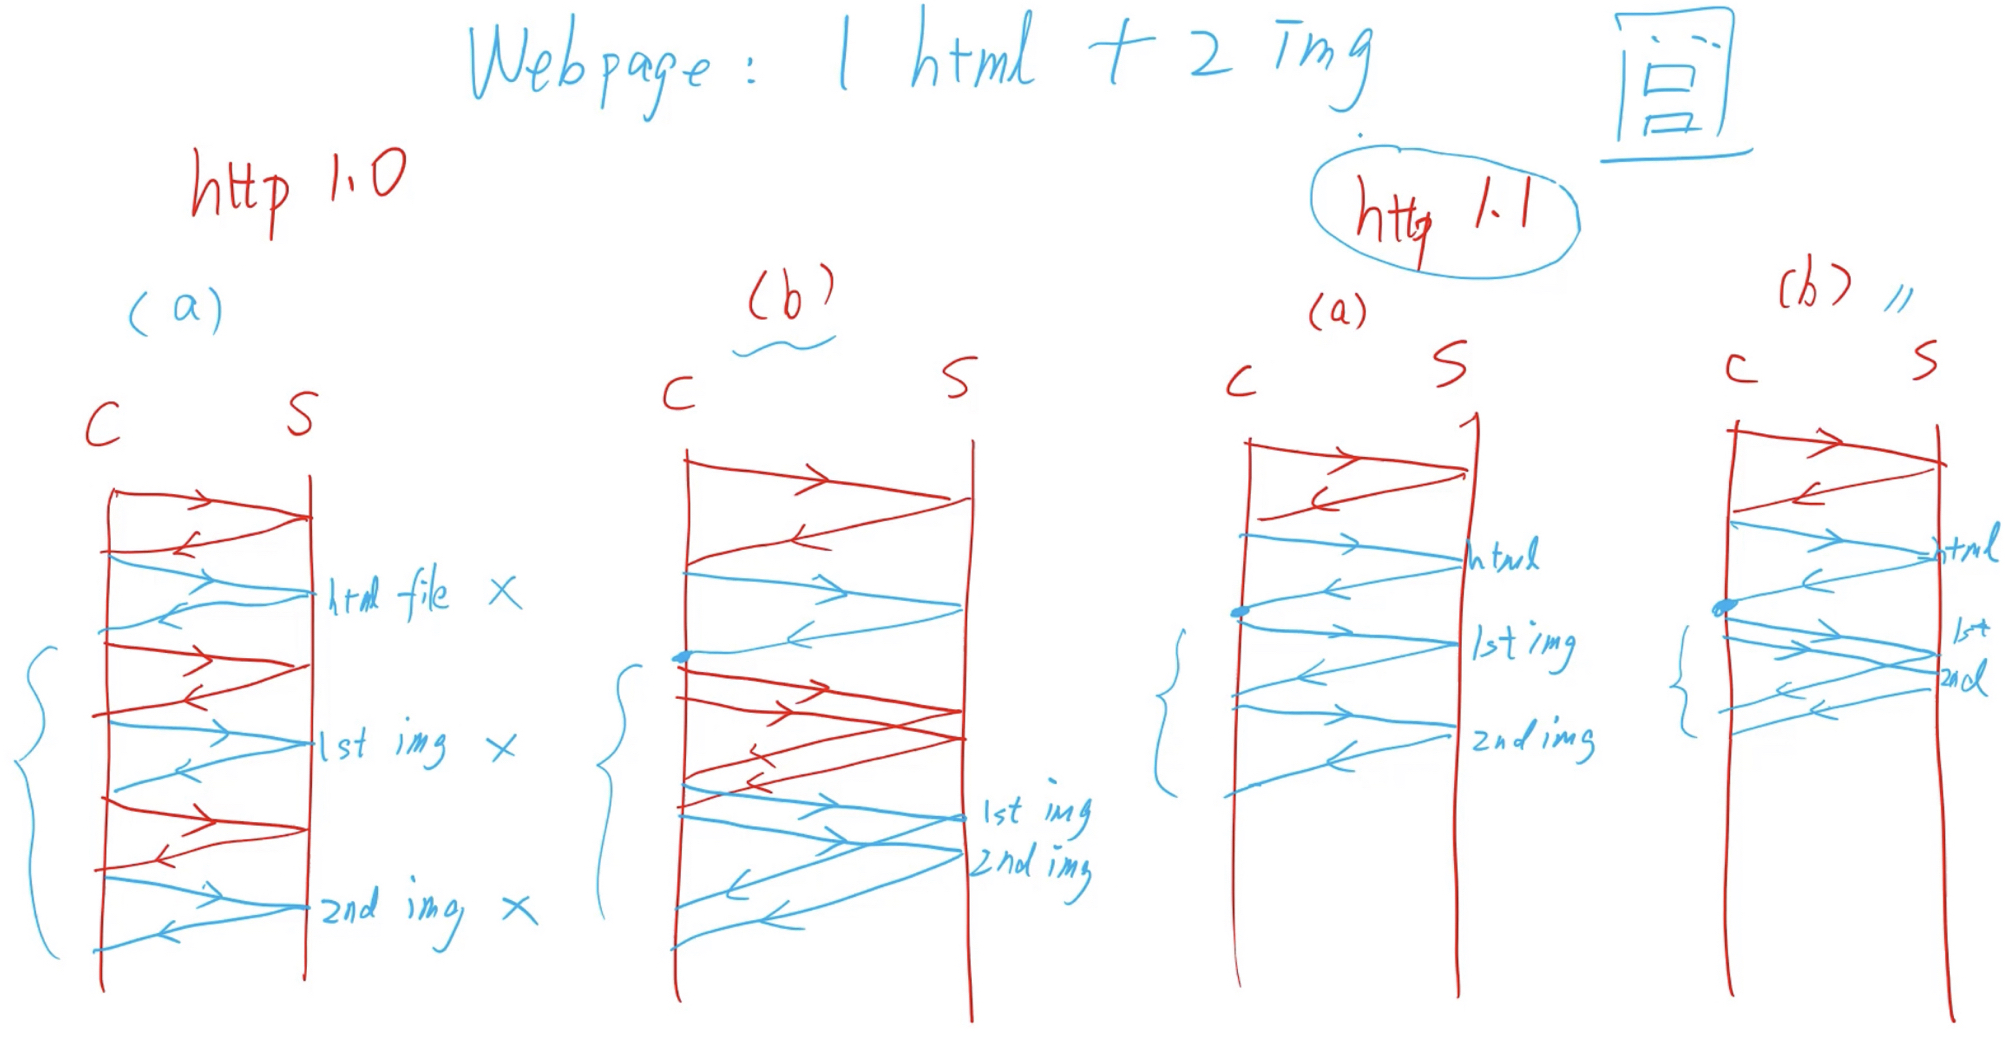 Webpage: 1 html + 2 img
http 1.0
http 1.1
(a)
(b)
(a)
(b)
C S
C S
C S
C S
html file ×
1st img ×
2nd img ×
1st img
2nd img
html
1st img
2nd img
html
1st
2nd